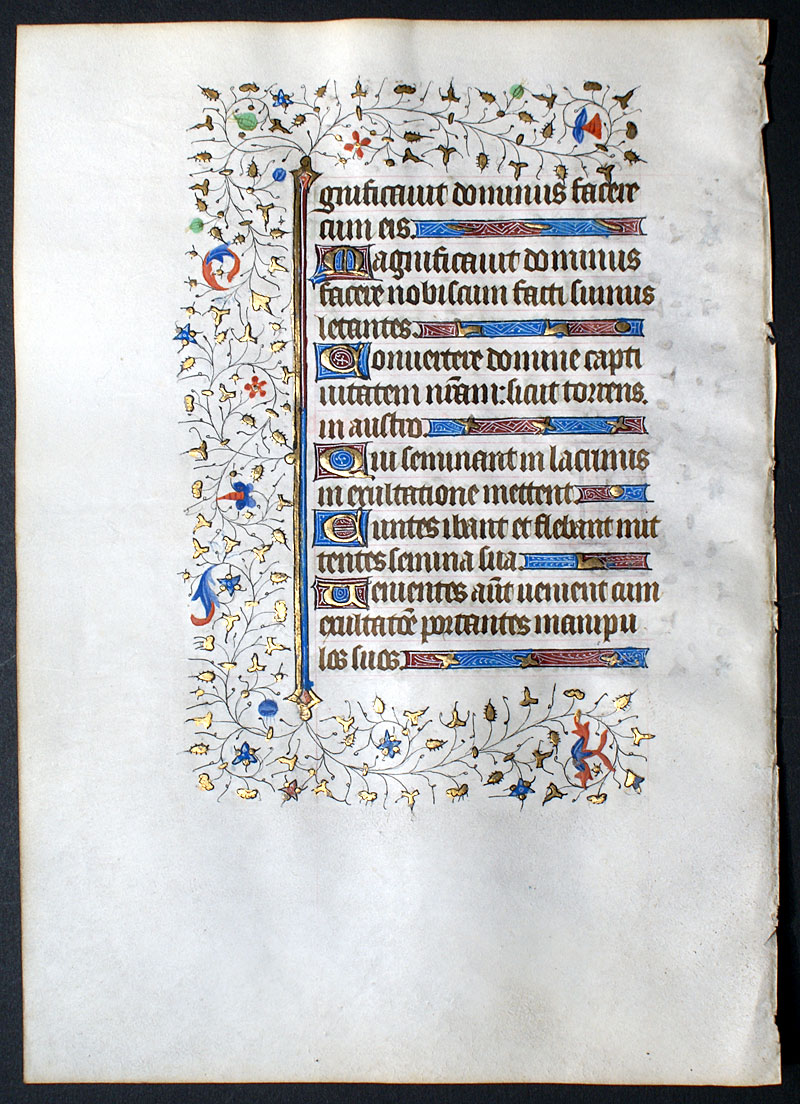 gnificauit dominus facere
cum eis.
Magnificauit dominus
facere nobiscum facti sumus
letantes.
Conuertere domine capti
uitatem nr̃am: sicut torrens
in austro.
Qui seminant in lacrimis
in exultatione mettent
Euntes ibant et flebant mit
tentes semina sua.
Uenientes aũt uenient cum
exultatõe portantes manipu
los suos.